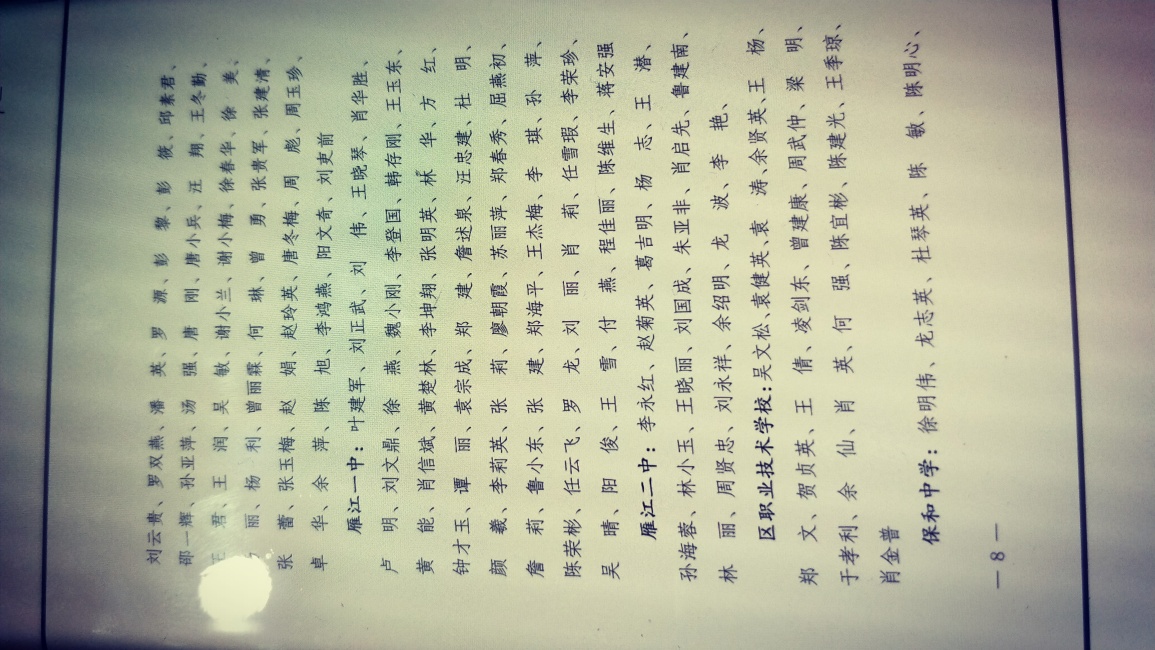 刘云贵、罗双燕、潘　英、罗　源、彭　黎、彭　筱、邱素君、
邵一辉、孙亚萍、汤　强、唐　刚、唐小兵、汪　翔、王冬勤、
君、王　润、吴　敏、谢小兰、谢小梅、徐春华、徐　美、
丽、杨　利、曾丽霖、何　琳、曾　勇、张贵军、张建清、
张　蕾、张玉梅、赵　娟、赵玲英、唐冬梅、周　彪、周玉珍、
卓　华、余　萍、陈　旭、李鸿燕、阳文奇、刘吏前
雁江一中：叶建军、刘正武、刘　伟、王晓琴、肖华胜、
卢　明、刘文鼎、徐　燕、魏小刚、李登国、韩存刚、王玉东、
黄　能、肖信斌、黄楚林、李坤翔、张明英、林　华、方　红、
钟才玉、谭　丽、袁宗成、郑　建、詹述泉、汪忠建、杜　明、
颜　羲、李莉英、张　莉、廖朝霞、苏丽萍、郑春秀、屈燕初、
詹　莉、鲁小东、张　建、郑海平、王杰梅、李　琪、孙　萍、
陈荣彬、任云飞、罗　龙、刘　丽、肖　莉、任雪瑕、李荣珍、
吴　晴、阳　俊、王　雪、付　燕、程佳丽、陈维生、蒋安强
雁江二中：李永红、赵菊英、葛吉明、杨　志、王　潜、
孙海蓉、林小玉、王晓丽、刘国成、朱亚非、肖启先、鲁建南、
林　丽、周贤忠、刘永祥、余绍明、龙　波、李　艳、
区职业技术学校：吴文松、袁健英、袁　涛、余贤英、王　杨、
郑　文、贺贞英、王　倩、凌剑东、曾建康、周武仲、梁　明、
于孝利、余　仙、肖　英、何　强、陈宜彬、陈建光、王季琼、
肖金普
保和中学：徐明伟、龙志英、杜琴英、陈　敏、陈明心、
— 8 —